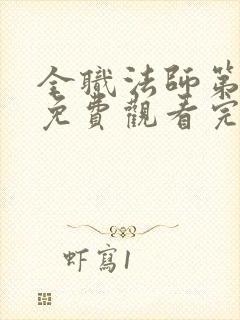 全職法師第
免費觀看完
虾寫1